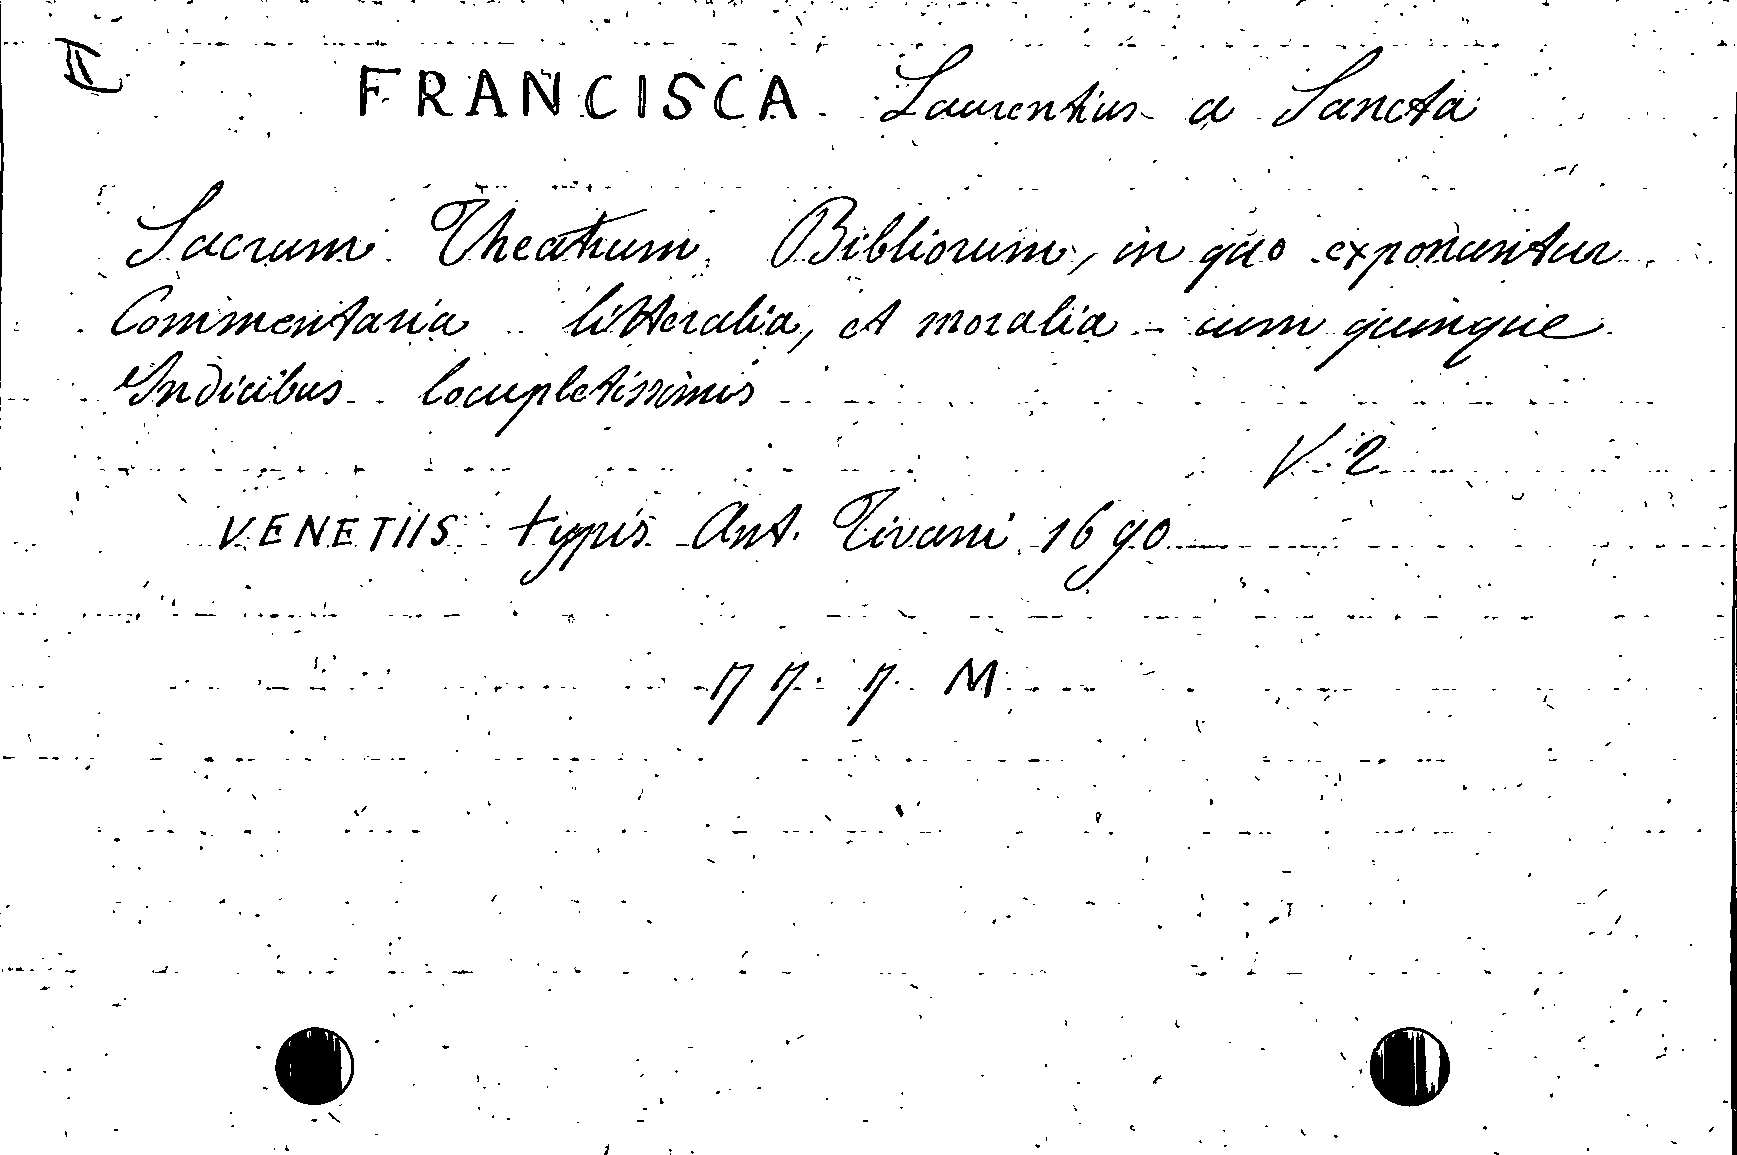 II
FRANCISCA Laurentius a Sancta
Sacrum Theatrum Bibliorum, in quo exponuntur
Commentaria litteralia, et moralia - cum quinque
Indicibus locupletissimis
V. 2
VENETIIS typis Ant. Tivani 1690
M